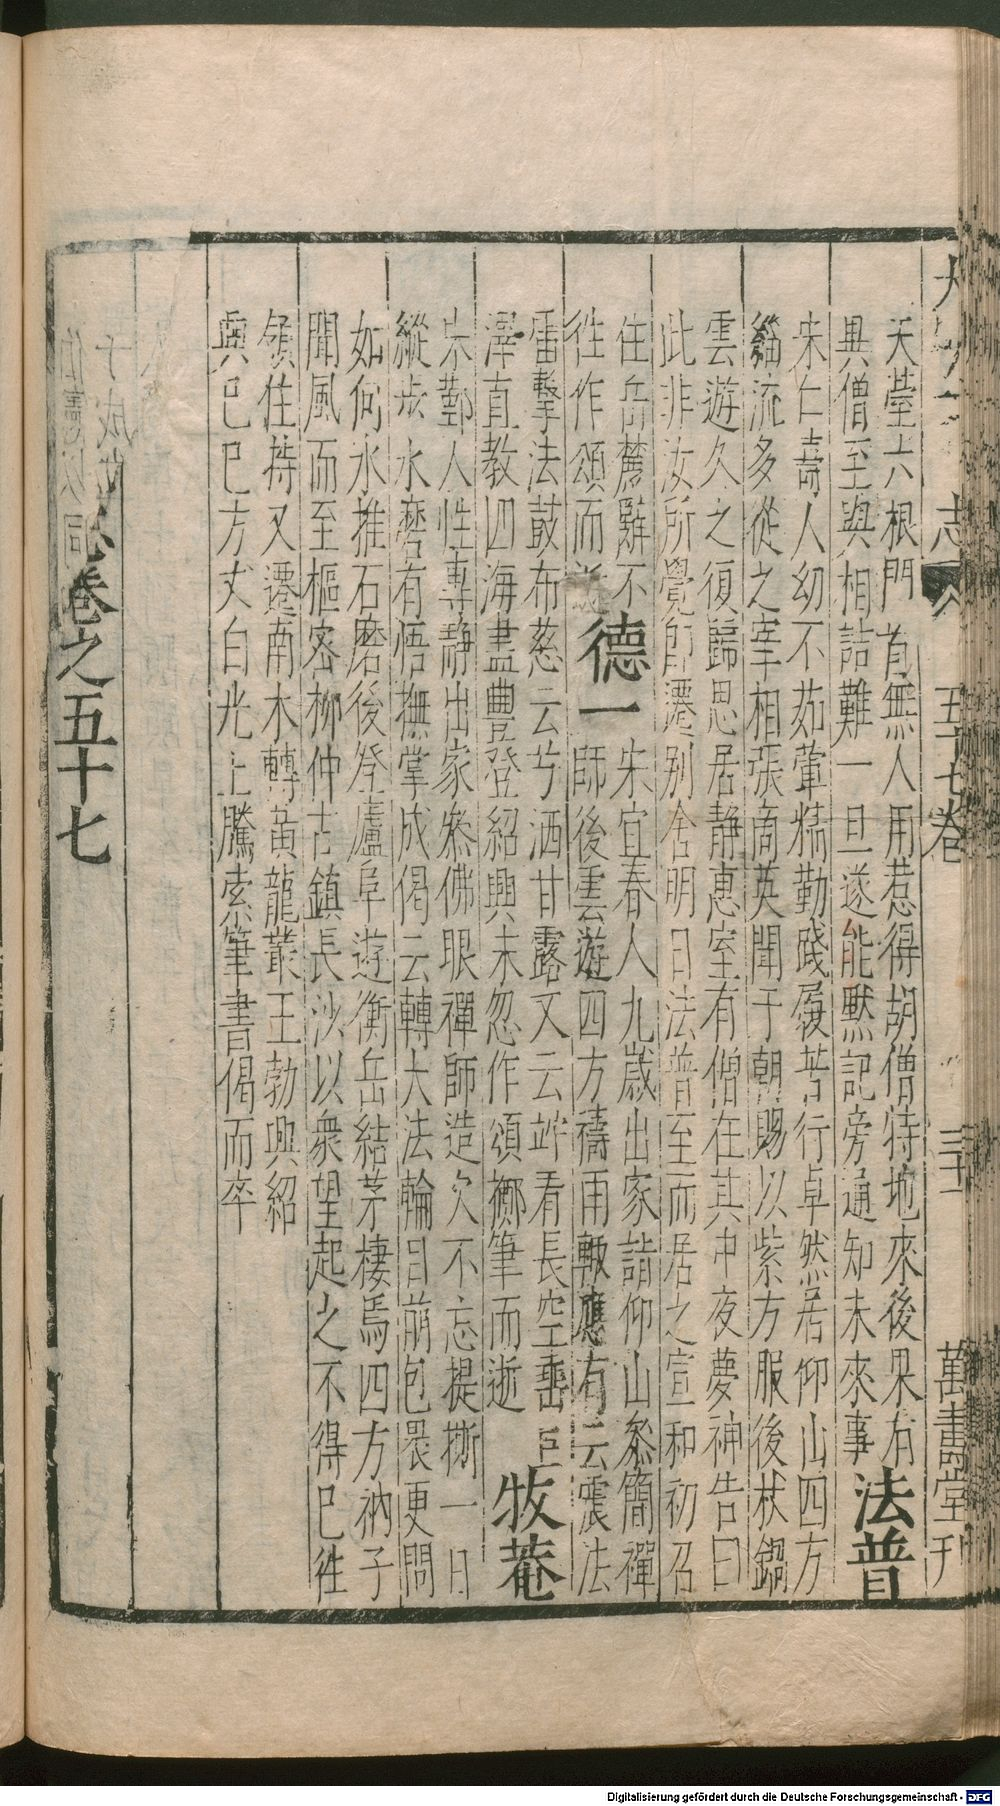 志 五十七卷 三十一 萬壽堂刊
天臺六根門首無人用惹得胡僧特地來後果有
異僧至與相詰難一旦遂能默記旁通知未來事 法普
宋仁壽人幼不茹葷精勤踐屨苦行卓然居仰山四方
緇流多從之宰相張商英聞于朝賜以紫方服後杖錫
雲遊久之復歸思居靜惠室有僧在其中夜夢神告曰
此非汝所覺師遷别舍明日法普至而居之宣和初召
住岳麓辭不 德一 宋宜春人九歲出家詣仰山叅簡禪
徃作頌而 師後雲遊四方禱雨輙應有云震法
雷擊法鼓布慈云兮洒甘露又云咋看長空垂
澤直教四海盡豊登紹興末忽作頌擲筆而逝 牧菴
宋鄞人性專靜出家叅佛眼禪師造次不忘提撕一日
縱步水磨有悟撫掌成偈云轉大法輪目前包畏更問
如何水推石磨後登廬阜遊衡岳結茅棲焉四方衲子
聞風而至樞密柳仲古鎮長沙以衆望起之不得已徃
領住持又遷南木轉黃龍叢王勃興紹
興己巳方丈白光上騰索筆書偈而卒
卷之五十七
Digitalisierung gefördert durch die Deutsche Forschungsgemeinschaft - DFG